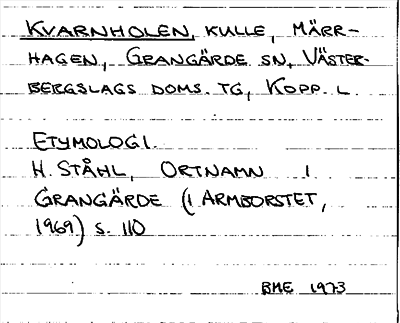 KVARNHOLEN, KULLE, MÄRR-
HAGEN, GRANGÄRDE SN, VÄSTER-
BERGSLAGS DOMS. TG, KOPP. L.
ETYMOLOGI.
H. STÅHL, ORTNAMN I
GRANGÄRDE (I ARMBORSTET,
1969) S. 110
BME 1973